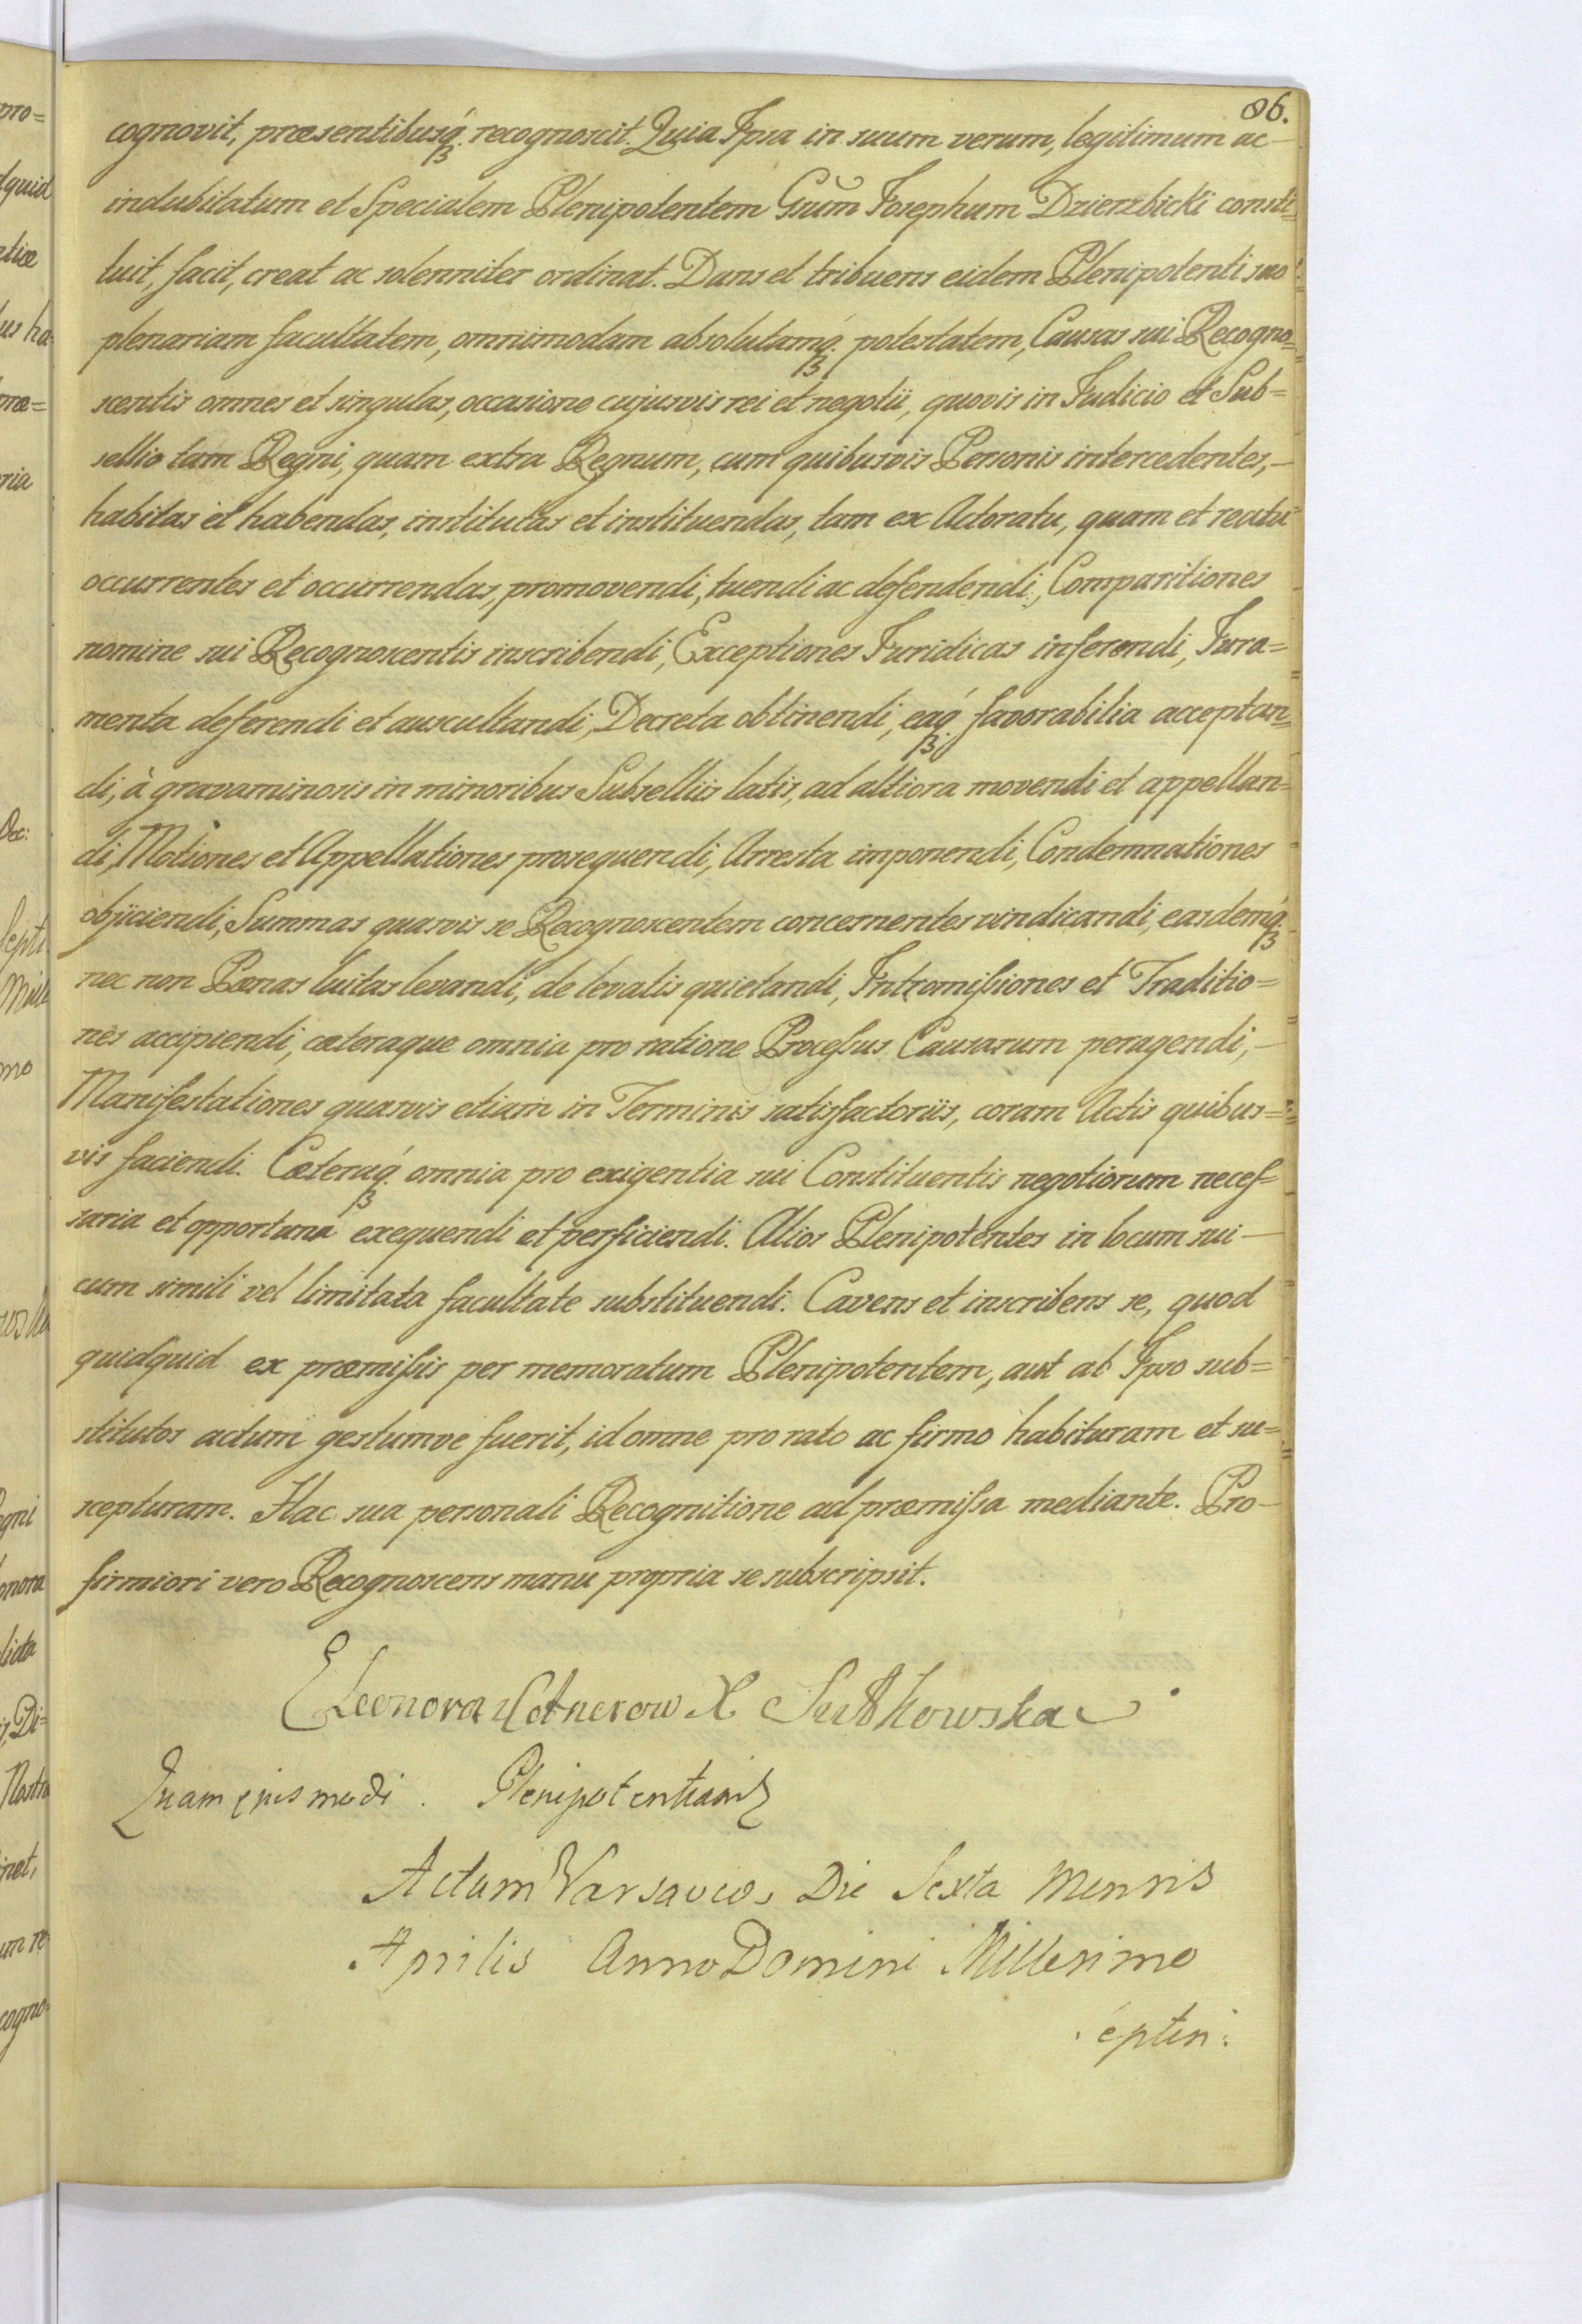 86.
cognovit, præsentibusq́ꝫ. recognoscit. Quia Ipsa in suum verum, legitimum ac
indubitatum et Specialem Plenipotentem Gsũm Josephum Dzierzbicki consti=
tuit, facit, creat ac solenniter ordinat. Dans et tribuens eidem Plenipotenti suo
plenariam facultatem, omnimodam absolutamq́ꝫ. potestatem, Causas sui Recogno=
scentis omnes et singulas, occasione cujusvis rei et negotii, quovis in Judicio et Sub=
sellio tam Regni, quam extra Regnum, cum quibusvis Personis intercedentes,
habitas et habendas, institutas et instituendas, tam ex Actoratu, quam et reatu
occurrentes et occurrendas, promovendi, tuendi ac defendendi, Comparitiones
nomine sui Recognoscentis inscribendi, Exceptiones Juridicas inferendi, Jura=
menta deferendi et auscultandi, Decreta obtinendi, eaq́ꝫ. favorabilia acceptan=
di, à gravaminosis in minoribus Subselliis latis, ad altiora movendi et appellan=
di, Motiones et Appellationes prosequendi, Arresta imponendi, Condemnationes
objiciendi, Summas quasvis se Recognoscentem concernentes vindicandi, easdemq́ꝫ
nec non Pœnas luitas levandi, de levatis quietandi, Intromiſsiones et Traditio=
nes accipiendi, cæteraque omnia pro ratione Proceſsus Causarum peragendi,
Manifestationes quasvis etiam in Terminis satisfactoriis, coram Actis quibus=
vis faciendi. Cæteraq́ꝫ. omnia pro exigentia sui Constituentis negotiorum neceſ=
saria et opportuna exequendi et perficiendi. Alios Plenipotentes in locum sui
cum simili vel limitata facultate substituendi. Cavens et inscribens se, quod
quidquid ex præmiſsis per memoratum Plenipotentem, aut ab Ipso sub=
stitutos actum gestumve fuerit, id omne pro rato ac firmo habituram et su=
scepturam. Hac sua personali Recognitione ad præmiſsa mediante. Pro
firmiori vero Recognoscens manu propria se subscripsit.
Eleonora z Cetnerow X Sułkowska
Quam ejusmodi. Plenipotentiam
Actum Varsaviæ, Die Sexta Mensis
Aprilis Anno Domini Millesimo
septin: